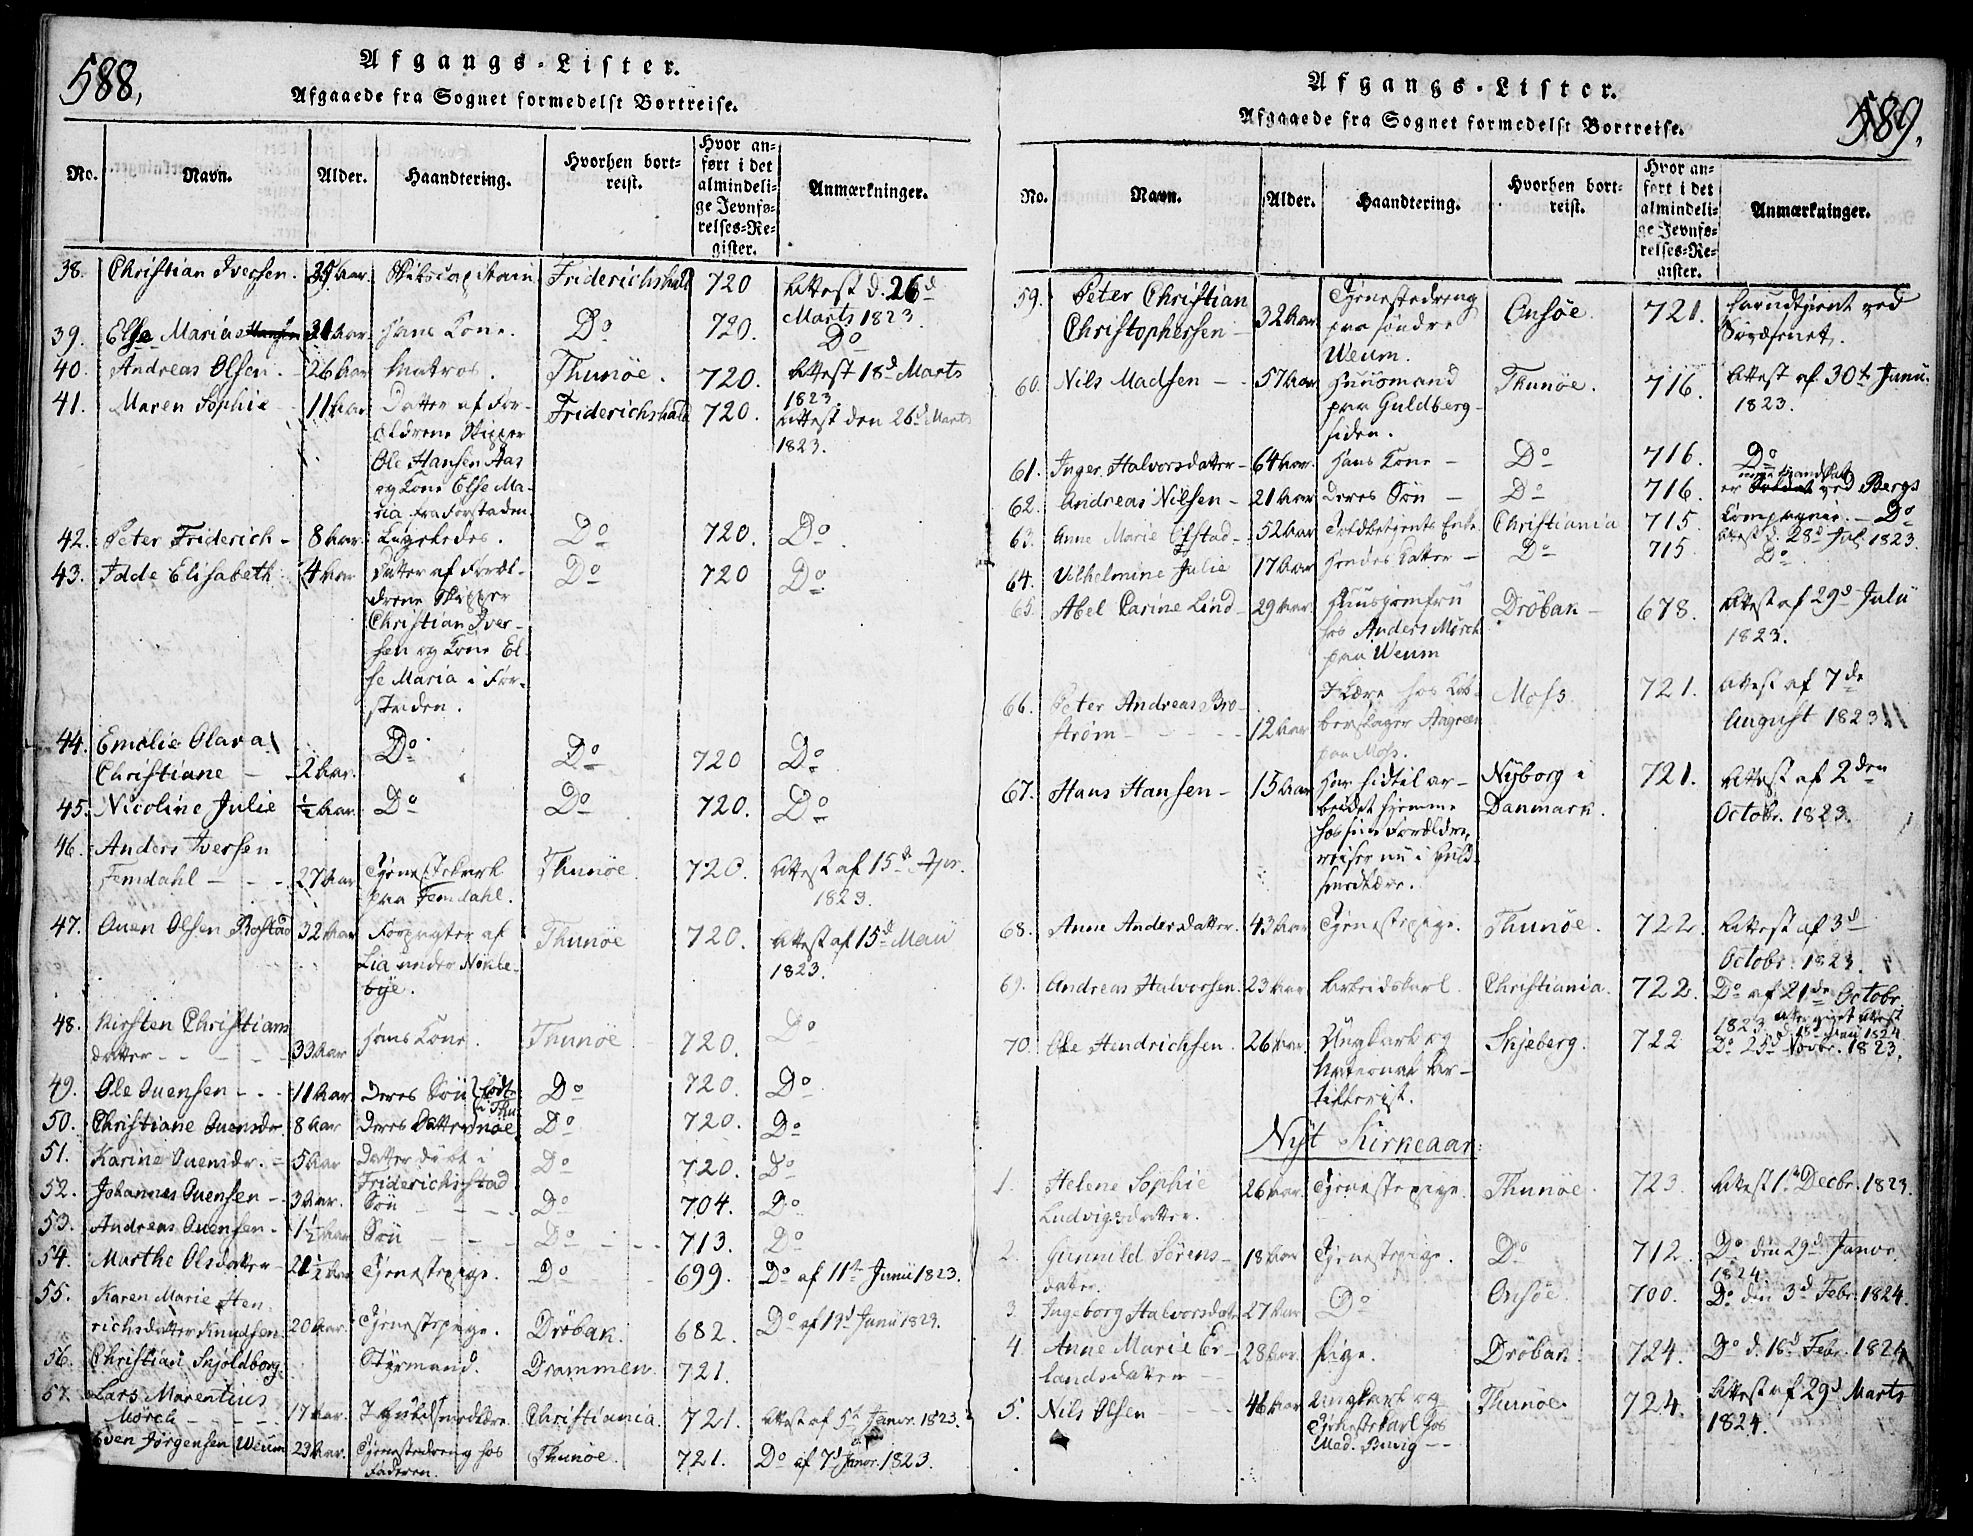 588,
Afgangs-Lister.
Afgaaede fra Sognet formedelst Bortreise.
No. Navn. Alder. Haandtering. Hvorhen bortreist. Hvor anført i det almindelige Jevnførelses-Register. Anmærkninger.
38. Christian Iversen. Aar. Skibscaptain Friderichshald 720 Attest d. 26d
Marts 1823.
39. Else Maria Aar. hans Kone. Do 720. Do
40. Andreas Olsen. 26 Aar Matros. Thunöe. 720. Attest 18d Marts
1823.
41. Maren Sophie 11 Aar Datter af For- Friderichshald 720. Attest den 26d Marts
ældrene Skipper 1823.
Ole Hansen Aas
og Kone Else Ma-
ria fra Forstaden
42. Peter Friderich - 8 Aar Ligeledes. Do 720. Do
43. Idde Elisabeth 4 Aar Datter af Foræl- Do 720 Do
drene Skipper
Christian Iver-
sen og Kone El-
se Maria i For-
staden.
44. Emelie Olava
Christiane - 2 Aar. Do Do 720 Do
45. Nicoline Julie ½ Aar. Do Do 720. Do
46. Anders Iversen
Femdahl - - - 27 Aar Tjenestekarl Thunöe. 720. Attest af 15de Apr.
paa Femdahl. 1823.
47. Ouen Olsen Rostad 32 Aar Forpagter af Thunöe 720. Attest af 15d Maii
Lia under Nökle- 1823.
bye.
48. Kirsten Christians
datter - - - 33 Aar hans Kone. Thunöe 720. Do
49. Ole Ouensen - - - 11 Aar Deres Sön födt Do 720. Do
i Thu-
50. Christiane Ouensdr. 8 Aar Deres Datter nöe. Do 720. Do
51. Karine Ouensdr. - 5 Aar Datter födt i Do 720. Do
Friderichsstad
52. Johannes Ouensen - 3 Aar. Sön - - - Do 704. Do
53. Andreas Ouensen - 1½ Aar Sön - - - Do - - - 713. Do
54. Marthe Olsdatter - 21½ Aar Tjenestepige. Do - 699. Do af 11te Junii 1823.
55. Karen Marie Hen-
richsdatter Knudsen. 20 Aar. Tjenestepige. Dröbak. 682. Do af 13d Junii 1823.
56. Christian Skjöldborg. Styrmand. Drammen. 721.
57. Lars Marentius
Mörch - - - 17 Aar. I Guldsmedlære. Christiania. 721. Attest af 5te Janr. 1823.
Sven Jörgensen Weum 23 Aar. Tjenestedreng hos Thunöe. 721. Do af 7d Janr. 1823.
Faderen.
589.
Afgangs-Lister.
Afgaaede fra Sognet formedelst Bortreise.
No. Navn. Alder. Haandtering. Hvorhen bortreist. Hvor anført i det almindelige Jevnførelses-Register. Anmærkninger.
59. Peter Christian Tjenestedreng
Christophersen - 32 Aar paa söndre Onsöe. 721. har udtjent ved
Weum. Söværnet.
60. Nils Madsen - - 57 Aar Huusmand Thunöe. 716. Attest af 30te Janu.
paa Guldberg- 1823.
siden.
61. Inger Halvorsdatter - 64 Aar. hans Kone - Do 716. Do
62. Andreas Nilsen - 21 Aar Deres Sön - Do 716. er ved Bergs
Compagnie. - Do
63. Anne Marie Elstad - 52 Aar Toldbetjents Enke Christiania 715. Attest d. 28d Juli 1823.
64. Vilhelmine Julie 17 Aar hendes Datter - Do 715 Do
65. Abel Carine Lind - 29 Aar Huusjomfru Dröbak - 678. Attest af 29d Julii
hos Anders Mörch 1823.
paa Weum
66. Peter Andreas Bro- I Lære hos Kob- Moss 721. Attest af 7de
ström - - - 12 Aar berslager Aagreen August 1823
paa Moss.
67. Hans Hansen - 15 Aar har hidtil ar- Nyborg i 721. Attest af 2den
beidet hjemme Danmark. Octobr. 1823.
hos sine Forældre,
reiser nu i Guld-
smedlære.
68. Anne Andersdatter. 43 Aar Tjenestepige. Thunöe. 722. Attest af 3d
Octobr. 1823.
69. Andreas Halvorsen. 23 Aar Arbeidskarl. Christiania. 722. Do af 21de Octobr.
1823. Attest
d. 18d 1824
70. Ole Hendrichsen. 26 Aar. Ungkarl og Skjeberg. 722 Do 25d Novbr. 1823.
National Ar-
tillerist.
Nyt Kirkeaar.
1. Helene Sophie 26 Aar. Tjenestepige. Thunöe. 723. Attest 1te Decbr. 1823.
Ludvigsdatter.
2. Gunnild Sörens- 18 Aar Tjenestepige. Do 712. Do den 29de Janvr.
datter. 1824
3. Ingeborg Halvorsdatr. 27 Aar Do Onsöe. 700. Do den 3d Febr. 1824.
4. Anne Marie Er- 28 Aar. Pige. Dröbak. 724. Do d. 18d Febr. 1824
landsdatter
5. Nils Olsen 46 Aar Ungkarl og Thunöe. 724. Attest af 29d Marts
Tjenestekarl hos 1824.
Mad.